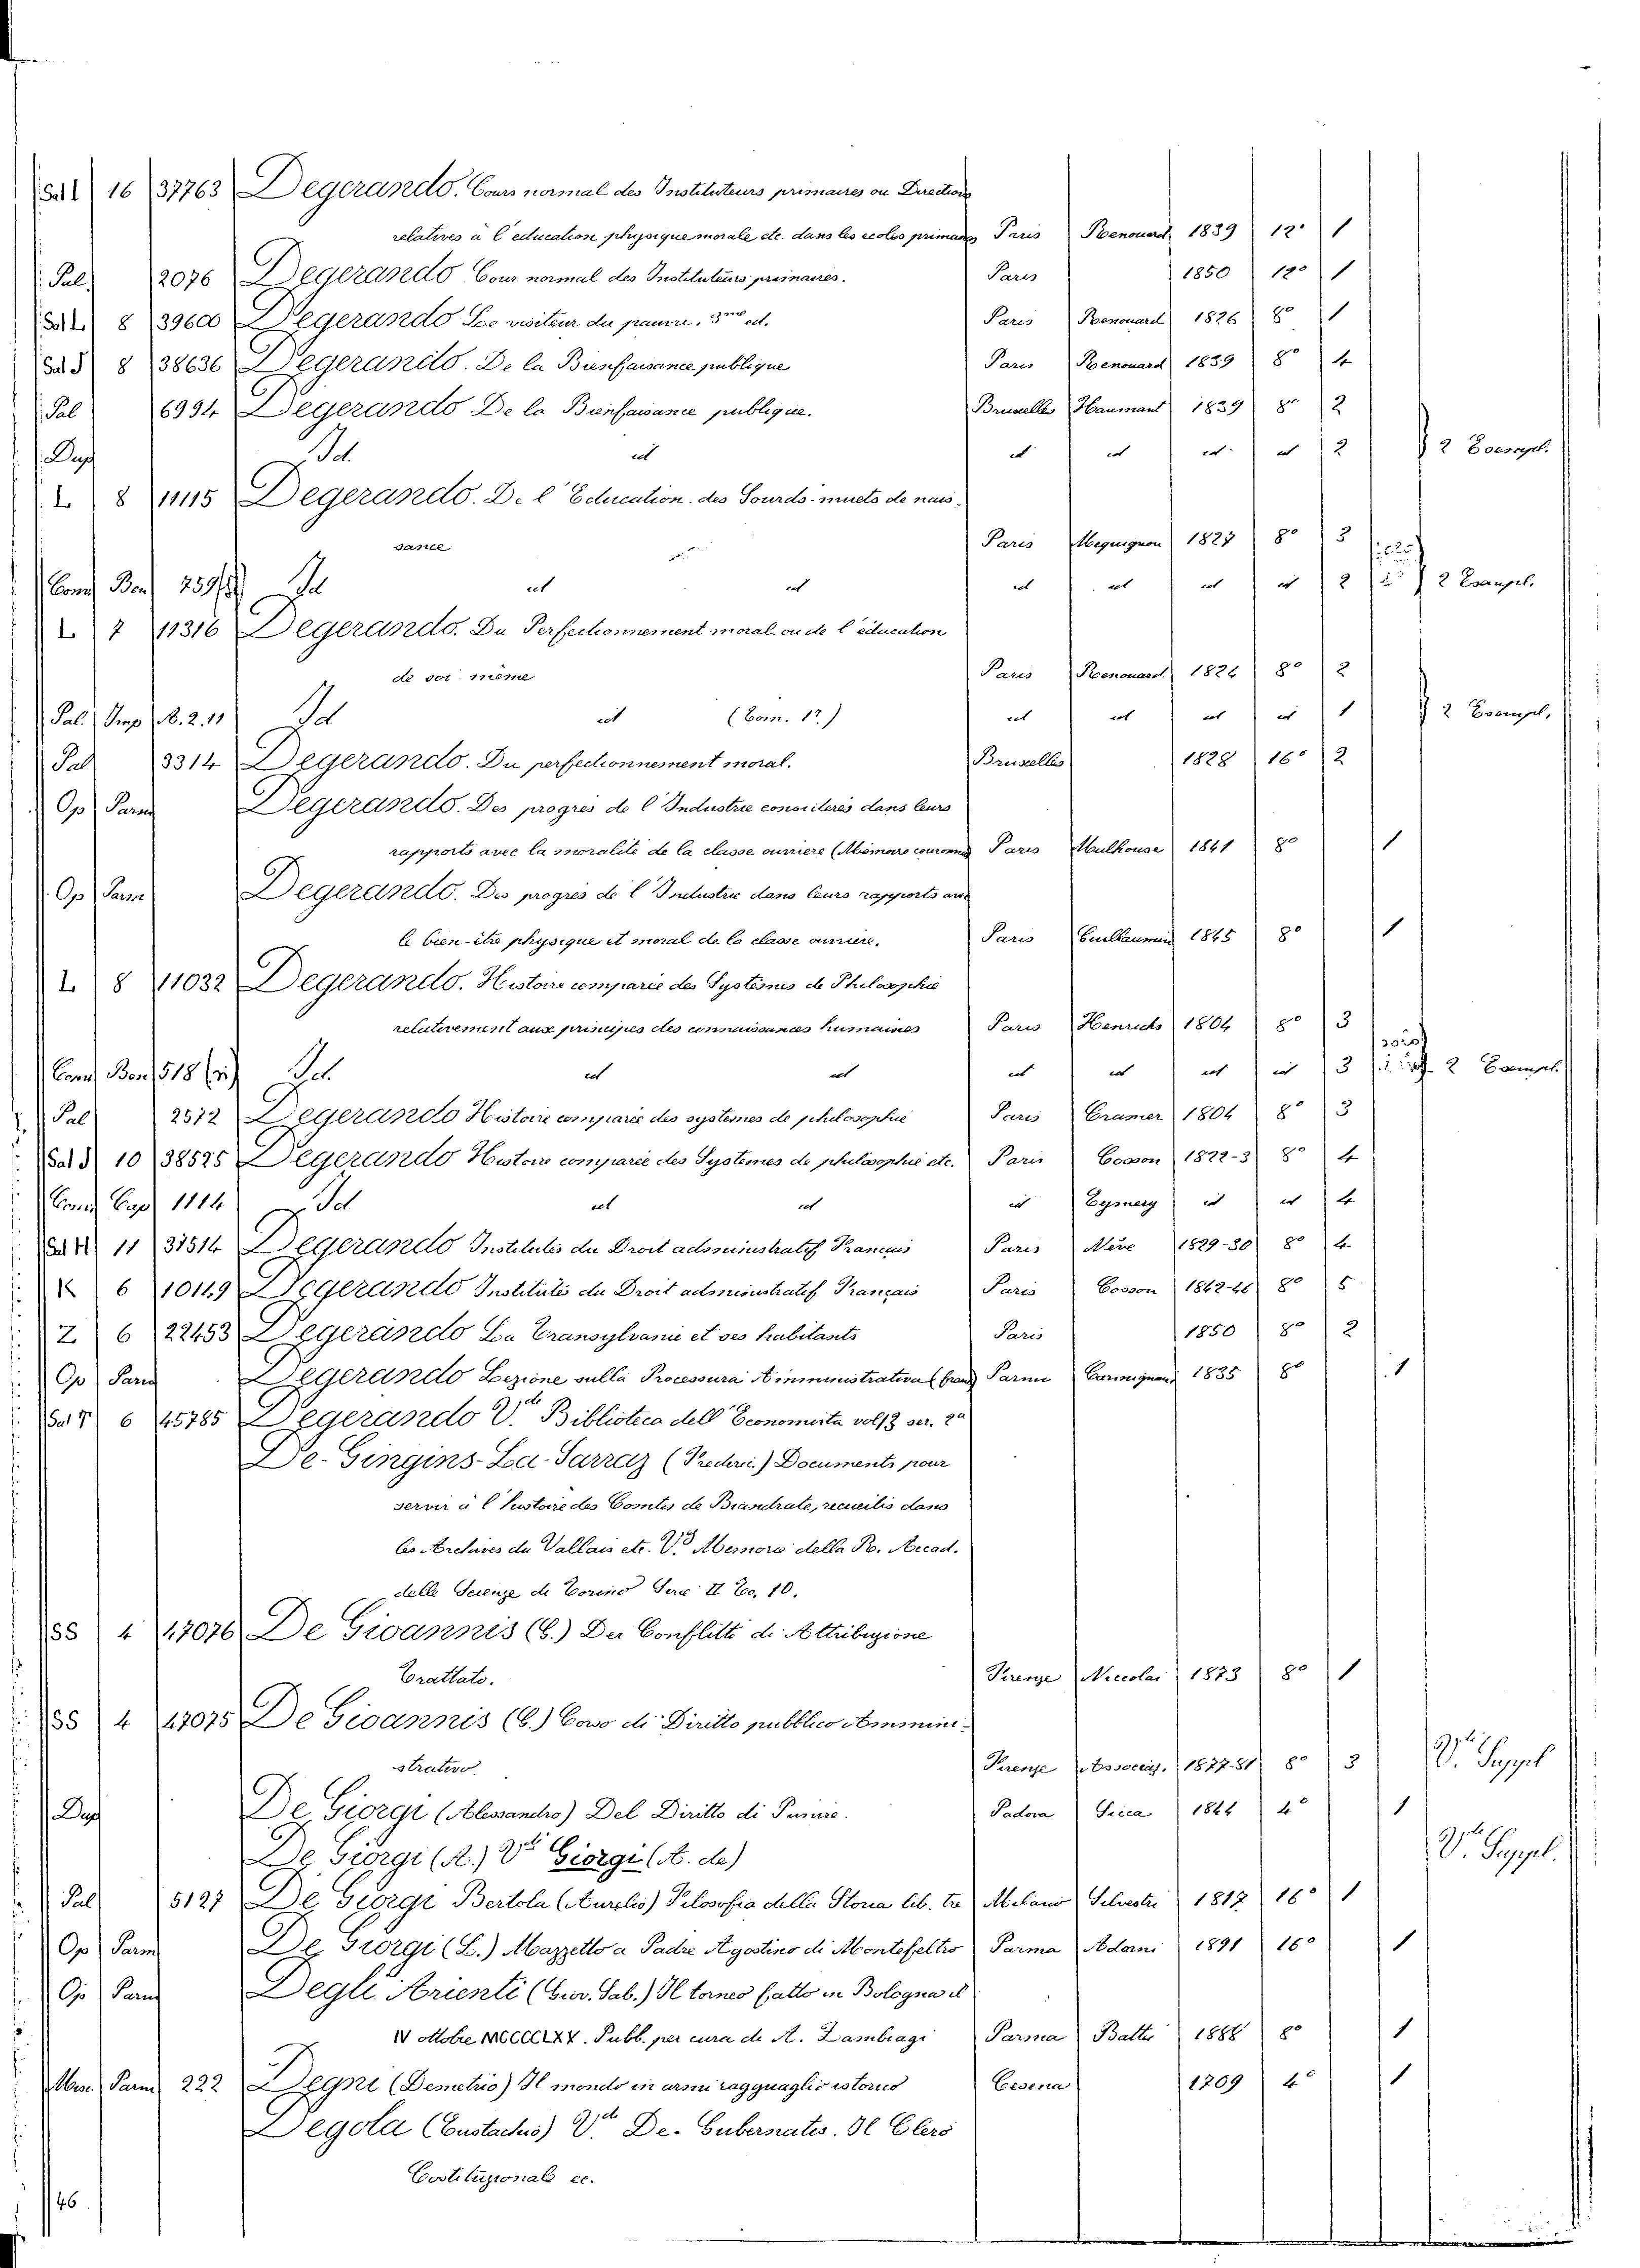 Sal I 16 37763 Degerando. Cours normal des Instituteurs primaires ou Directions
relatives à l'education physique morale etc. dans les ecoles primaires Paris Renouard 1839 12° 1
Pal. 2076 Degerando Cour normal des Instituteurs primaires. Paris 1850 12° 1
Sal L 8 39600 Degerando Le visiteur du pauvre. 3me ed. Paris Renouard 1826 8° 1
Sal J 8 38636 Degerando. De la Bienfaisance publique Paris Renouard 1839 8° 4
Pal 6994 Degerando De la Bienfaisance publique. Bruxelles Haumant 1839 8° 2
Dup Id. id id id id id 2 2 Esempl.
L 8 11115 Degerando. De l'Education des Sourds-muets de nais-
sance Paris Mequignon 1827 8° 3
Com Bon 259 Id id id id id id id 2 2 Esempl.
L 7 11316 Degerando. Du Perfectionnement moral, ou de l'éducation
de soi-même Paris Renouard 1826 8° 2
Pal. Imp B. 2. 11 Id id (Tom. 1°.) id id id id 1 2 Esempl.
Pal 3314 Degerando. Du perfectionnement moral. Bruxelles 1828 16° 2
Op Parm Degerando. Des progrès de l'Industrie considerés dans leurs
rapports avec la moralité de la classe ouvriere (Mémoire couronné Paris Mulhouse 1841 8° 1
Op Parm Degerando. Des progrès de l'Industrie dans leurs rapports avec
le bien-être physique et moral de la classe ouvriere. Paris Guillaumin 1845 8° 1
L 8 11032 Degerando. Histoire comparée des Systèmes de Philosophie
relativement aux principes des connaissances humaines Paris Henrichs 1804 8° 3
Com Bon 518 Id. id id id id id id 3 2 Esempl.
Pal 2572 Degerando Histoire comparée des systemes de philosophie Paris Cramer 1804 8° 3
Sal J 10 38525 Degerando Histoire comparée des Systemes de philosophie etc. Paris Cosson 1822-3 8° 4
Com Cap 1114 Id id id id Eymery id id 4
Sal H 11 37514 Degerando Institutes du Droit administratif Francais Paris Nève 1829-30 8° 4
K 6 10149 Degerando Institutes du Droit administratif Français Paris Cosson 1842-46 8° 5
Z 6 22453 Degerando La Transylvanie et ses habitants Paris 1850 8° 2
Op Parm Degerando Lezione sulla Processura Amministrativa (franc) Parma Carmignani 1835 8° 1
Sal T 6 45785 Degerando V.di Biblioteca dell'Economista vol 13 ser. 2a
De-Gingins-La-Sarraz (Frederic.) Documents pour
servir à l'histoire des Comtes de Biandrate, recueilis dans
les Archives du Vallais etc. V.di Memorie della R. Accad.
delle Scienze di Torino Serie II To. 10.
SS 4 47076 De Gioannis (G.) Dei Conflitti di Attribuzione
Trattato. Firenze Niccolai 1873 8° 1
SS 4 47075 De Gioannis (G.) Corso di Diritto pubblico Ammini-
strativo Firenze Associaz. 1877-81 8° 3 V.di Suppl
Dup De Giorgi (Alessandro) Del Diritto di Punire. Padova Sicca 1844 4° 1
De Giorgi (A.) V.di Giorgi (A. de) V.di Suppl.
Pal 5127 De Giorgi Bertola (Aurelio) Filosofia della Storia lib. tre Milano Silvestri 1817 16° 1
Op Parm De Giorgi (L.) Mazzetto a Padre Agostino di Montefeltro Parma Adorni 1891 16° 1
Op Parm Degli Arienti (Giov. Sab.) Il torneo fatto in Bologna il
IV ottobre MCCCCLXX. Pubb. per cura di A. Zambiagi Parma Battei 1888 8° 1
Misc. Parm 222 Degni (Demetrio) Il mondo in armi ragguaglio istorico Cesena 1709 4° 1
Degola (Eustachio) V.di De-Gubernatis. Il Clero
Costituzionale ec.
46